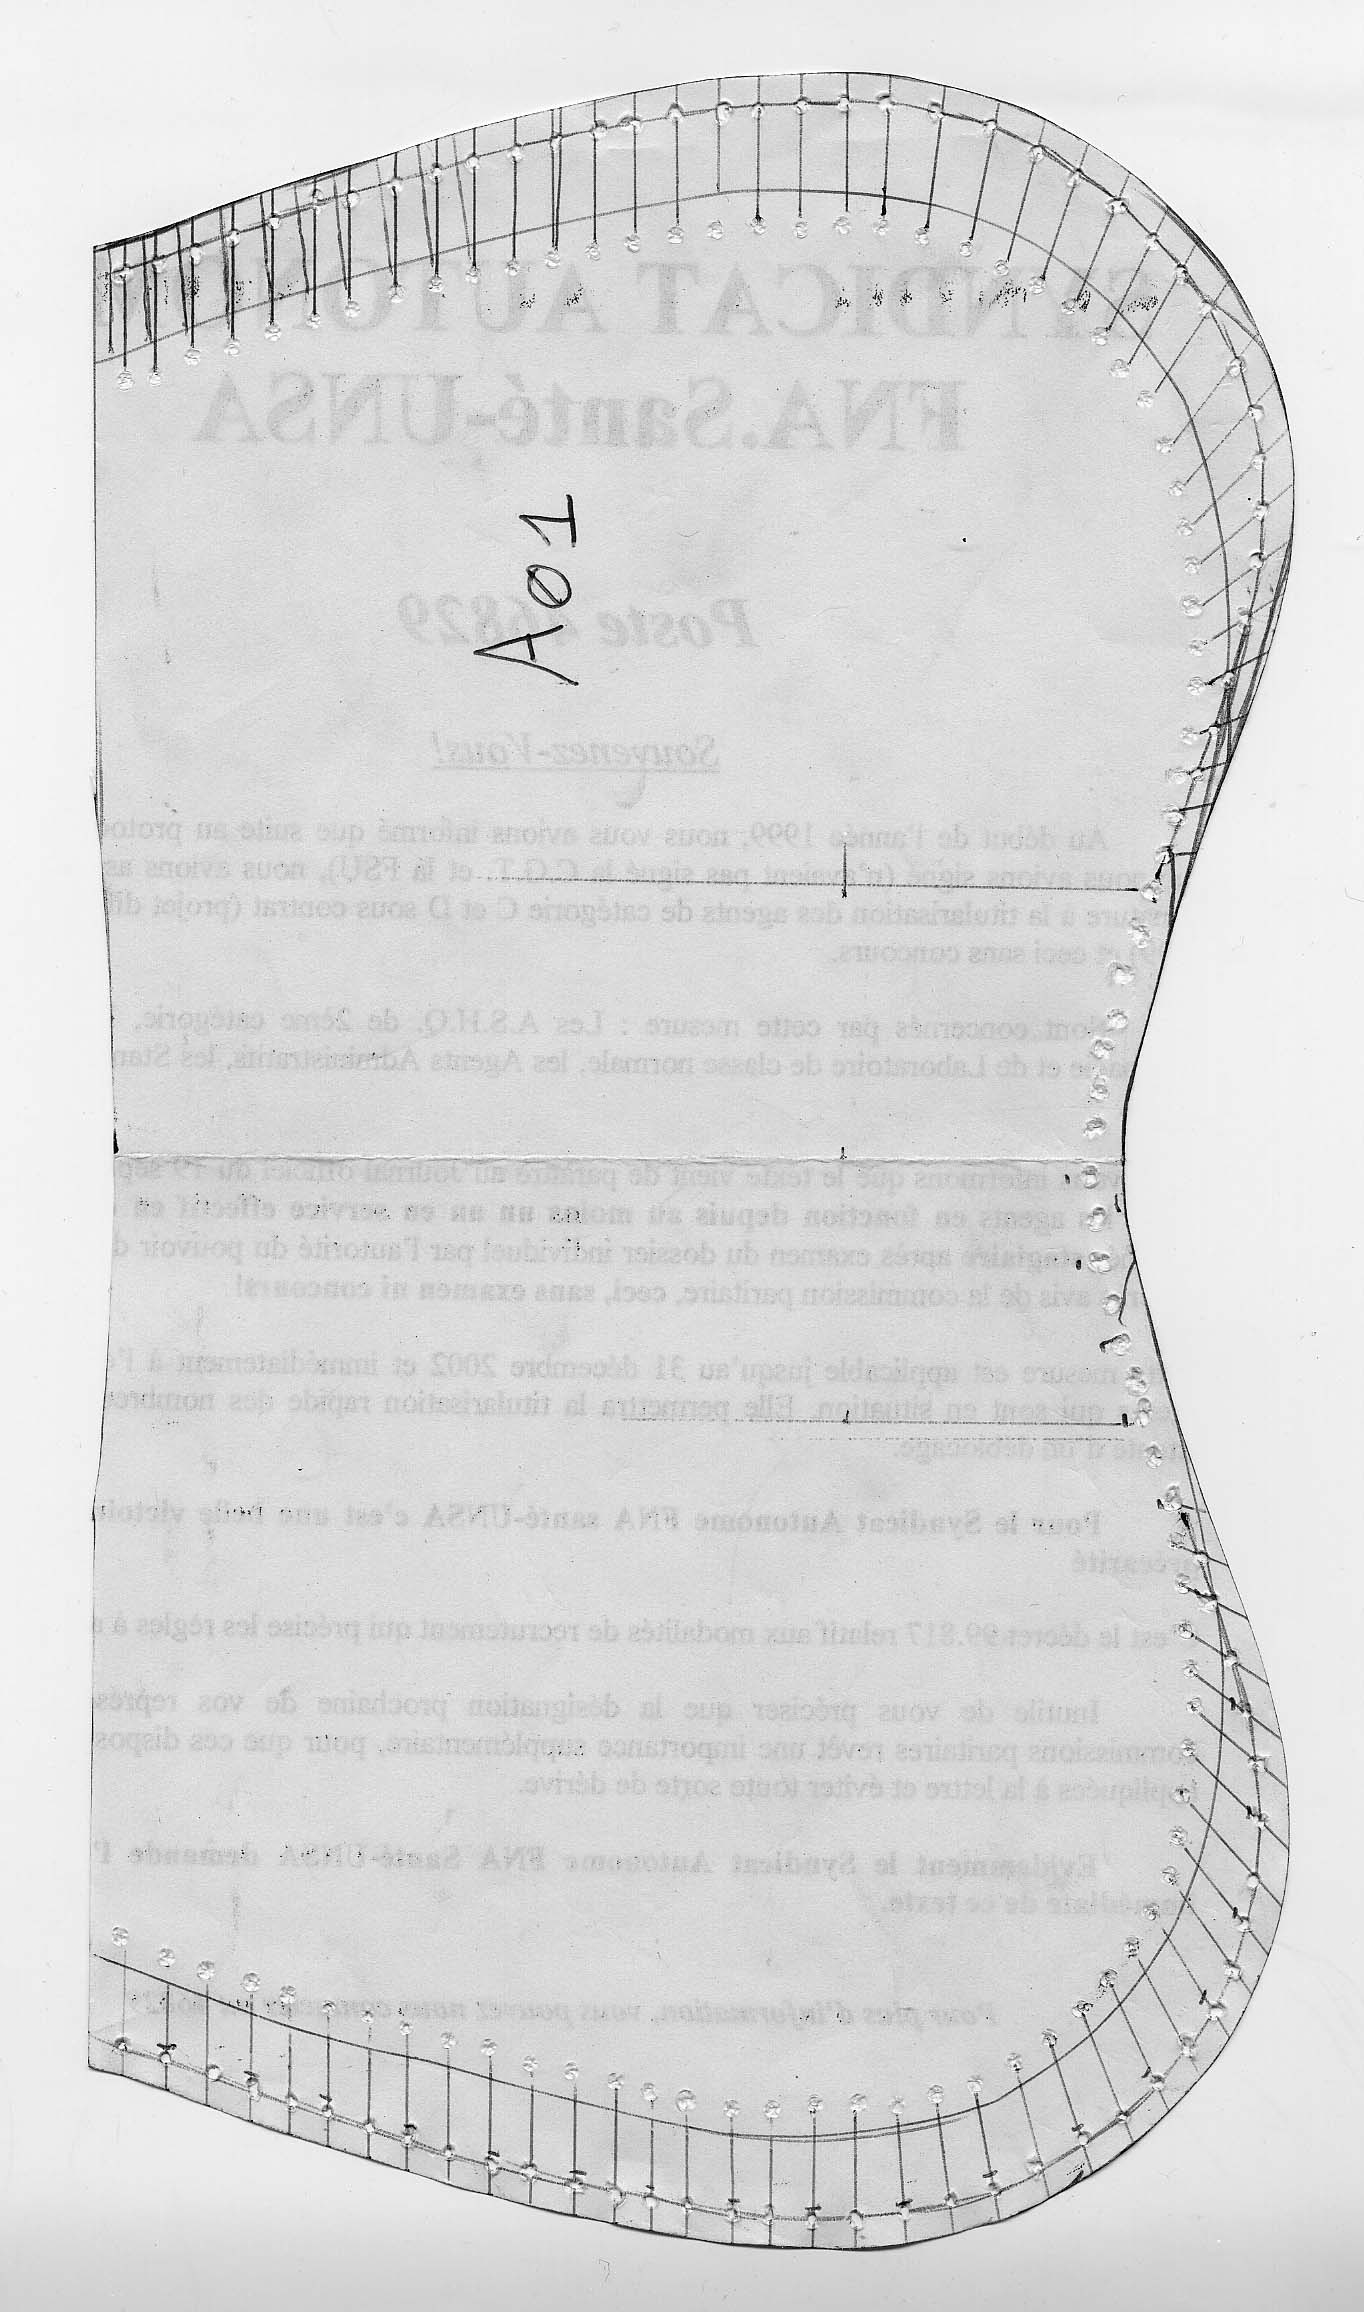 A01
SYNDICAT AUTONO
FNA.Santé-UNSA
Poste 6829
Souvenez-Vous!
Au début de l'année 1999, nous vous avions informé que suite au protoc
nous avions signé (n'avaient pas signé la C.G.T. et la FSU), nous avions as
mesure à la titularisation des agents de catégorie C et D sous contrat (projet di
et ceci sans concours.
Sont concernés par cette mesure : Les A.S.H.Q. de 2ème catégorie,
et de Laboratoire de classe normale, les Agents Administratifs, les Stan
informons que le texte vient de paraître au Journal officiel du 19 sep
agents en fonction depuis au moins un an en service effectif en
stagiaire après examen du dossier individuel par l'autorité du pouvoir d
avis de la commission paritaire, ceci, sans examen ni concours!
mesure est applicable jusqu'au 31 décembre 2002 et immédiatement à l'e
qui sont en situation. Elle permettra la titularisation rapide des nombre
d'un déblocage.
Pour le Syndicat Autonome FNA santé-UNSA c'est une belle victoi
précarité
est le décret 99.817 relatif aux modalités de recrutement qui précise les règles à
Inutile de vous préciser que la désignation prochaine de vos représ
commissions paritaires revêt une importance supplémentaire, pour que ces dispos
appliquées à la lettre et éviter toute sorte de dérive.
Evidemment le Syndicat Autonome FNA Santé-UNSA demande l'
immédiate de ce texte.
Pour plus d'information, vous pouvez nous